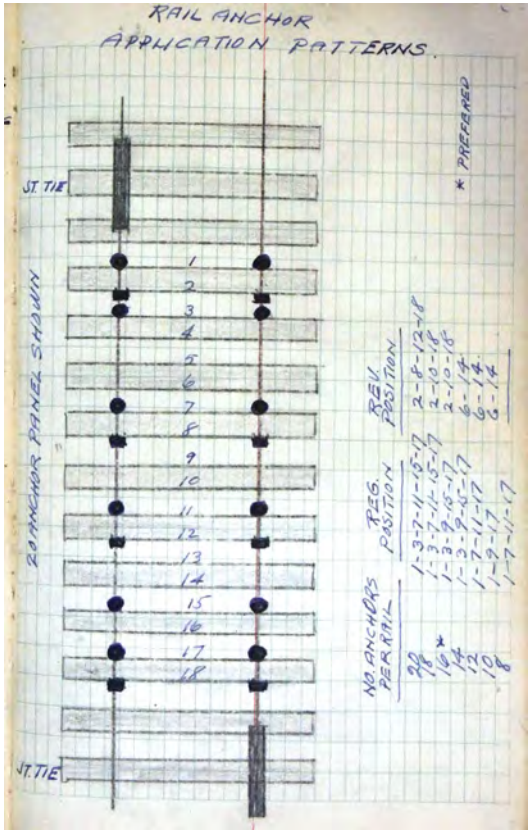 RAIL ANCHOR
APPLICATION PATTERNS.
JT. TIE
1
2
3
4
5
6
7
8
9
10
11
12
13
14
15
16
17
18
JT. TIE
20 ANCHOR PANEL SHOWN
NO. ANCHORS PER RAIL REG. POSITION REV. POSITION
20 1-3-7-11-15-17 2-8-12-18
18 1-3-7-11-15-17 2-10-18
16* 1-3-9-15-17 2-10-18
14 1-3-9-15-17 6-14
12 1-7-11-17 6-14
10 1-9-17 6-14
8 1-7-11-17
* PREFERED